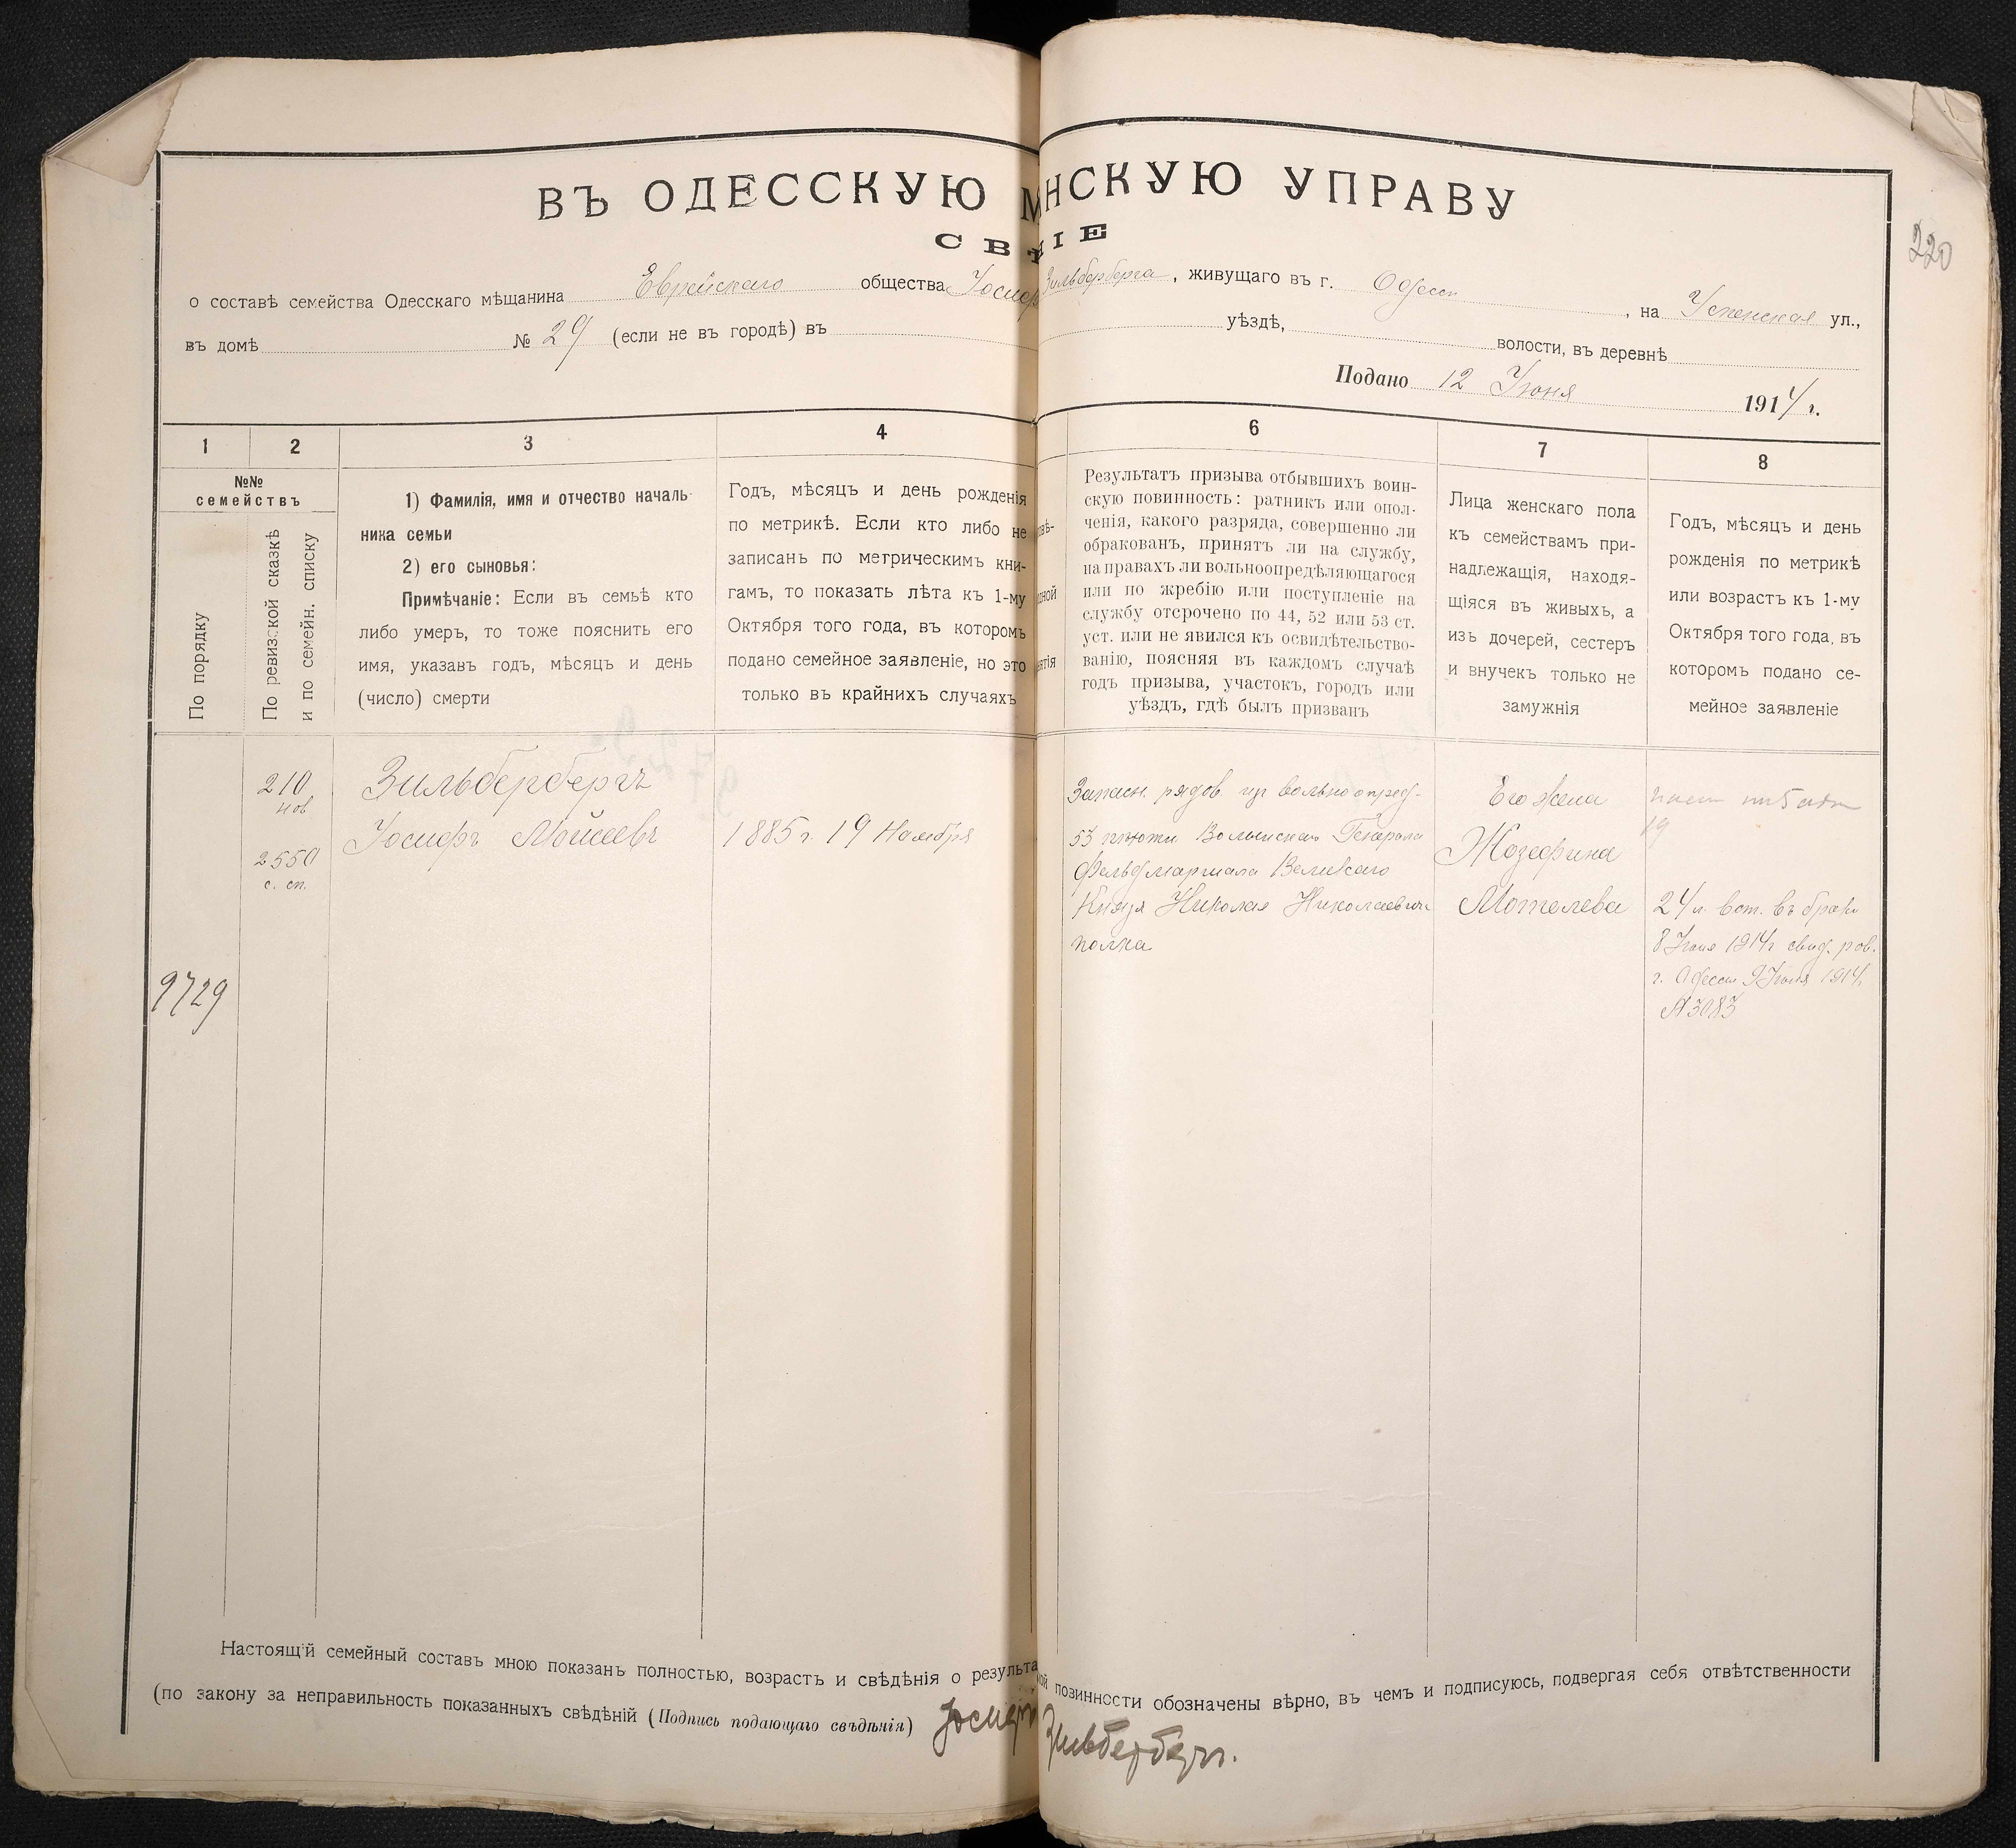 220
ВЪ ОДЕССКУЮ М НСКУЮ УПРАВУ
СВѢ НІЕ
о составѣ семейства Одесскаго мѣщанина Еврейскаго общества Іосиф Зильберберга, живущаго въ г. Одессѣ, на Успенская ул.,
въ домѣ № 29 (если не въ городѣ) въ уѣздѣ, волости, въ деревнѣ
Подано 12 Іюня 1914 г.
1
2
3
4
6
7
8
№№
семействъ
По порядку
По ревизской сказкѣ
и по семейн. списку
1) Фамилія, имя и отчество началь-
ника семьи
2) его сыновья:
Примѣчаніе: Если въ семьѣ кто
либо умеръ, то тоже пояснить его
имя, указавъ годъ, мѣсяцъ и день
(число) смерти
Годъ, мѣсяцъ и день рожденія
по метрикѣ. Если кто либо не
записанъ по метрическимъ кни-
гамъ, то показать лѣта къ 1-му
Октября того года, въ которомъ
подано семейное заявленіе, но это
только въ крайнихъ случаяхъ
Результатъ призыва отбывшихъ воин-
скую повинность: ратникъ или опол-
ченія, какого разряда, совершенно ли
обракованъ, принятъ ли на службу,
на правахъ ли вольноопредѣляющагося
или по жребію или поступленіе на
службу отсрочено по 44, 52 или 53 ст.
уст. или не явился къ освидѣтельство-
ванію, поясняя въ каждомъ случаѣ
годъ призыва, участокъ, городъ или
уѣздъ, гдѣ былъ призванъ
Лица женскаго пола
къ семействамъ при-
надлежащія, находя-
щіяся въ живыхъ, а
изъ дочерей, сестеръ
и внучекъ только не
замужнія
Годъ, мѣсяцъ и день
рожденія по метрикѣ
или возрастъ къ 1-му
Октября того года, въ
которомъ подано се-
мейное заявленіе
9729
210
нов
2550
с. сп.
Зильбербергъ
Іосифъ Мойсеевъ
1885 г. 19 Ноября
Запасн. рядов. из вольноопред-
53 пѣхотн Волынскаго Генерала
Фельдмаршала Великаго
Князя Николая Николаевича
полка
Его жена
Жозефина
Мотелева
19
24 л. вст. въ бракъ
8 Іюня 1914 г свид. рав.
г. Одессы 9 Іюня 1914
№ 3083
Настоящій семейный составъ мною показанъ полностью, возрастъ и свѣдѣнія о результа ой повинности обозначены вѣрно, въ чемъ и подписуюсь, подвергая себя отвѣтственности
(по закону за неправильность показанныхъ свѣдѣній (Подпись подающаго свѣдѣнія) Іосифъ Зильбербергъ.